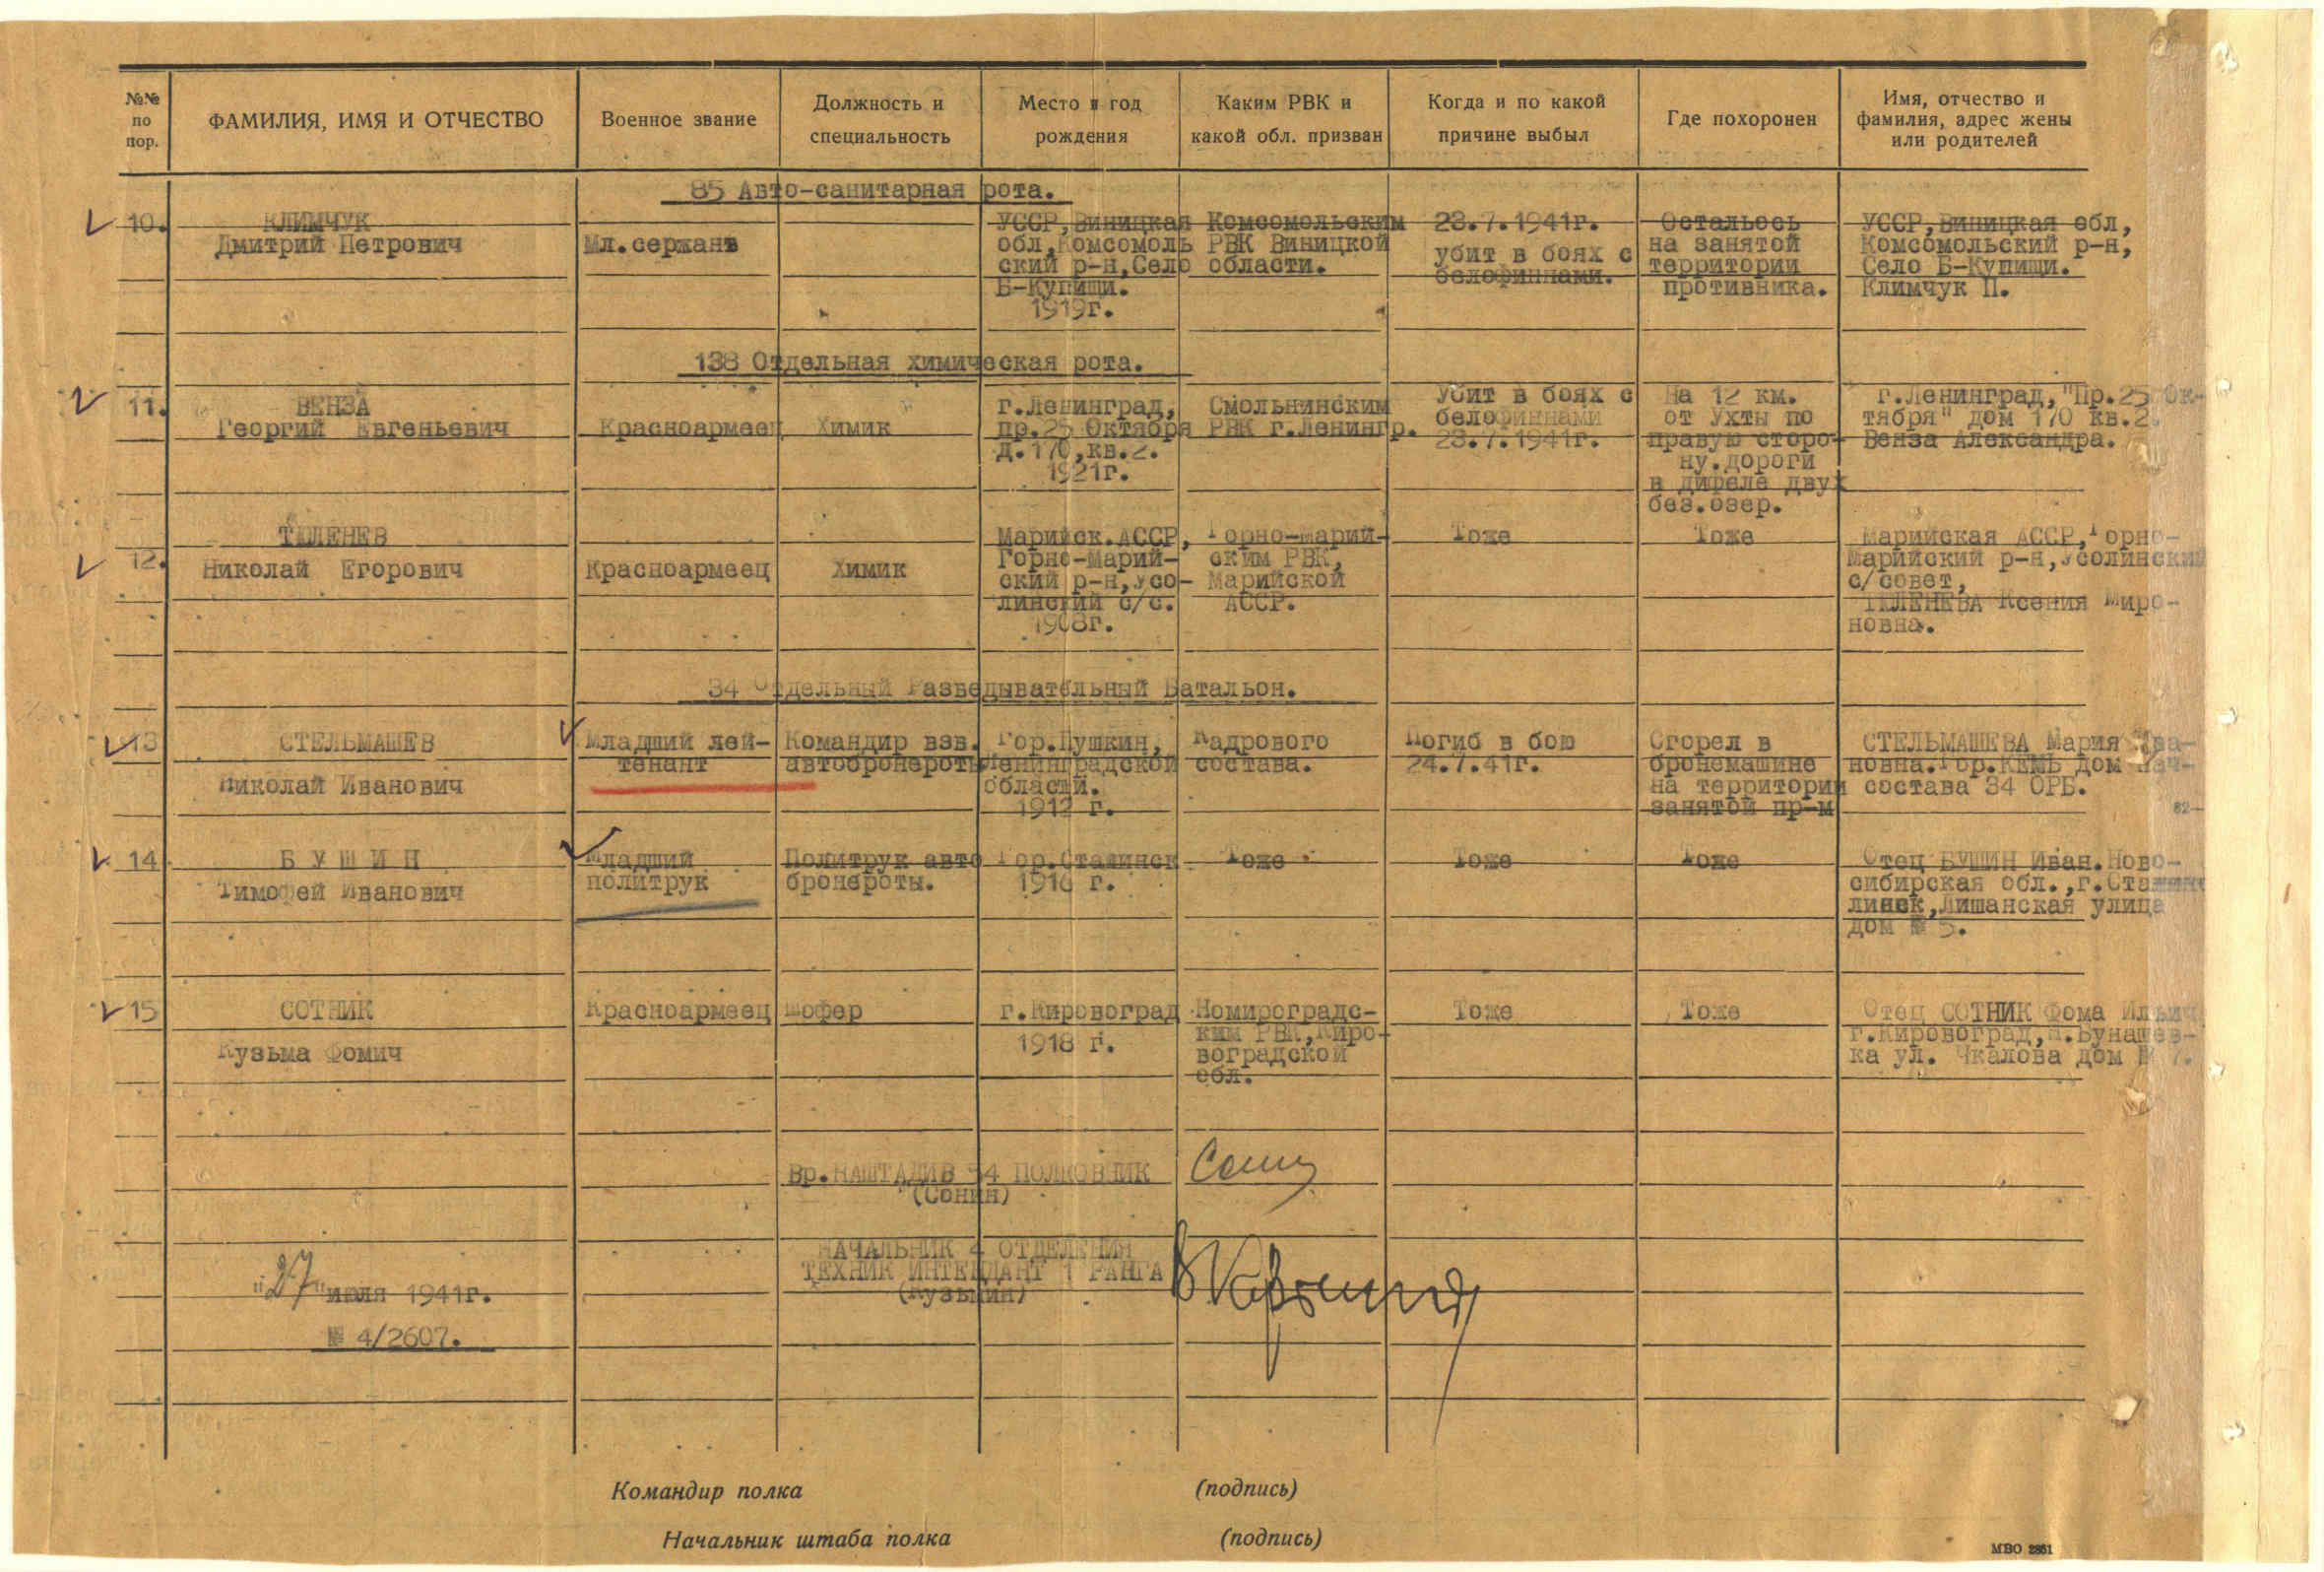 №№ по пор.
ФАМИЛИЯ, ИМЯ И ОТЧЕСТВО
Военное звание
Должность и специальность
Место и год рождения
Каким РВК и какой обл. призван
Когда и по какой причине выбыл
Где похоронен
Имя, отчество и фамилия, адрес жены или родителей
85 Авто-санитарная рота.
10.
КЛИМЧУК
Дмитрий Петрович
Мл.сержант
УССР,Виницкая
обл,Комсомоль
ский р-н,Село
Б-Купищи.
1919г.
Комсомольским
РВК Виницкой
области.
23.7.1941г.
убит в боях с
белофиннами.
Остальось
на занятой
территории
противника.
УССР,Виницкая обл,
Комсомольский р-н,
Село Б-Купищи.
Климчук П.
138 Отдельная химическая рота.
11.
ВЕНЗА
Георгий Евгеньевич
Красноармеец
Химик
г.Ленинград,
пр.25 Октября
д.170,кв.2.
1921г.
Смольнинским
РВК г.Ленингр.
Убит в боях с
белофиннами
23.7.1941г.
На 12 км.
от Ухты по
правую сторо-
ну.дороги
в дифеле двух
без.озер.
г.Ленинград,"Пр.25 Ок-
тября" дом 170 кв.2.
Венза Александра.
12.
ТЕЛЕНЕВ
Николай Егорович
Красноармеец
Химик
Марийск.АССР,
Горно-Марий-
ский р-н,Усо-
линский с/с.
1908г.
Горно-Марий-
ским РВК,
Марийской
АССР.
Тоже
Тоже
Марийская АССР,Горно-
Марийский р-н,Усолинский
с/совет,
ТЕЛЕНЕВА Ксения Миро-
новна.
34 Отдельный Разведывательный Батальон.
13
СТЕЛЬМАШЕВ
Николай Иванович
Младший лей-
тенант
Командир взв.
автобронероты
Гор.Пушкин,
Ленинградской
области.
1912 г.
Кадрового
состава.
Погиб в бою
24.7.41г.
Сгорел в
бронемашине
на территории
занятой пр-м
СТЕЛЬМАШЕВА Мария Ива-
новна.Гор.КЕМЬ дом нач-
состава 34 ОРБ.
82
14
БУШИН
Тимофей Иванович
Младший
политрук
Политрук авто
бронероты.
Гор.Сталинск
1916 г.
Тоже
Тоже
Тоже
Отец БУШИН Иван.Ново-
сибирская обл.,г.Ста
линск,Лишанская улица
дом № 5.
15
СОТНИК
Кузьма Фомич
Красноармеец
Шофер
г.Кировоград
1918 г.
Номироградс-
ким РВК,Киро-
воградской
обл.
Тоже
Тоже
Отец СОТНИК Фома Ильич
г.Кировоград,п.Бунашев-
ка ул. Чкалова дом № 7.
Вр.НАШТАДИВ 54 ПОЛКОВНИК
(Сонин)
НАЧАЛЬНИК 4 ОТДЕЛЕНИЯ
ТЕХНИК ИНТЕНДАНТ 1 РАНГА
(Кузьмин)
"27" июля 1941г.
№ 4/2607.
Командир полка (подпись)
Начальник штаба полка (подпись)
МВО 2861